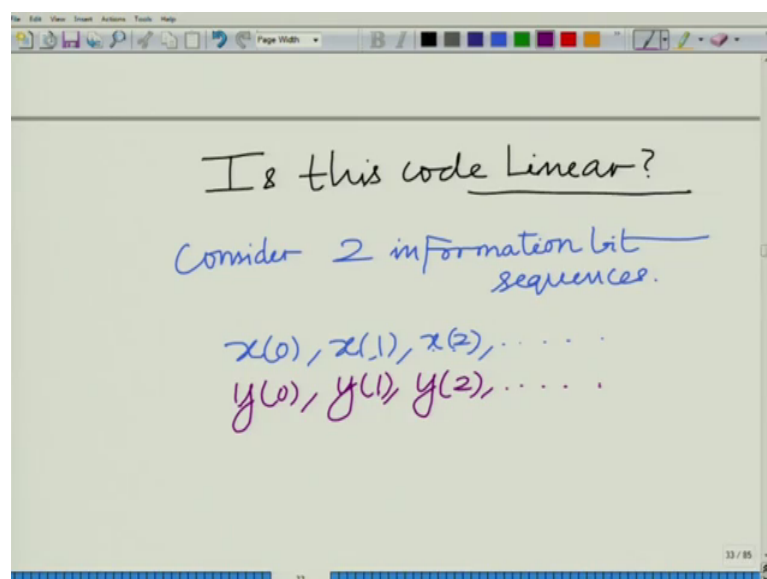 File Edit View Insert Actions Tools Help
Page Width
B I
Is this code Linear?
Consider 2 information bit
sequences.
x(0), x(1), x(2), . . . . .
y(0), y(1), y(2), . . . . .
33 / 85
33